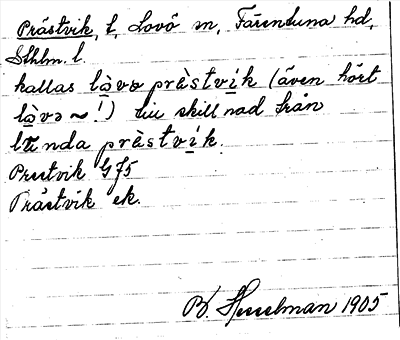 Prästvik, t, Lovö sn, Färentuna hd,
Sthlm. l.
kallas lòvə prästvík (även hört
lòvə ~!) till skillnad från
lunda prästvík.
Prestvik G 75
Prästvik ek.
B. Hesselman 1905